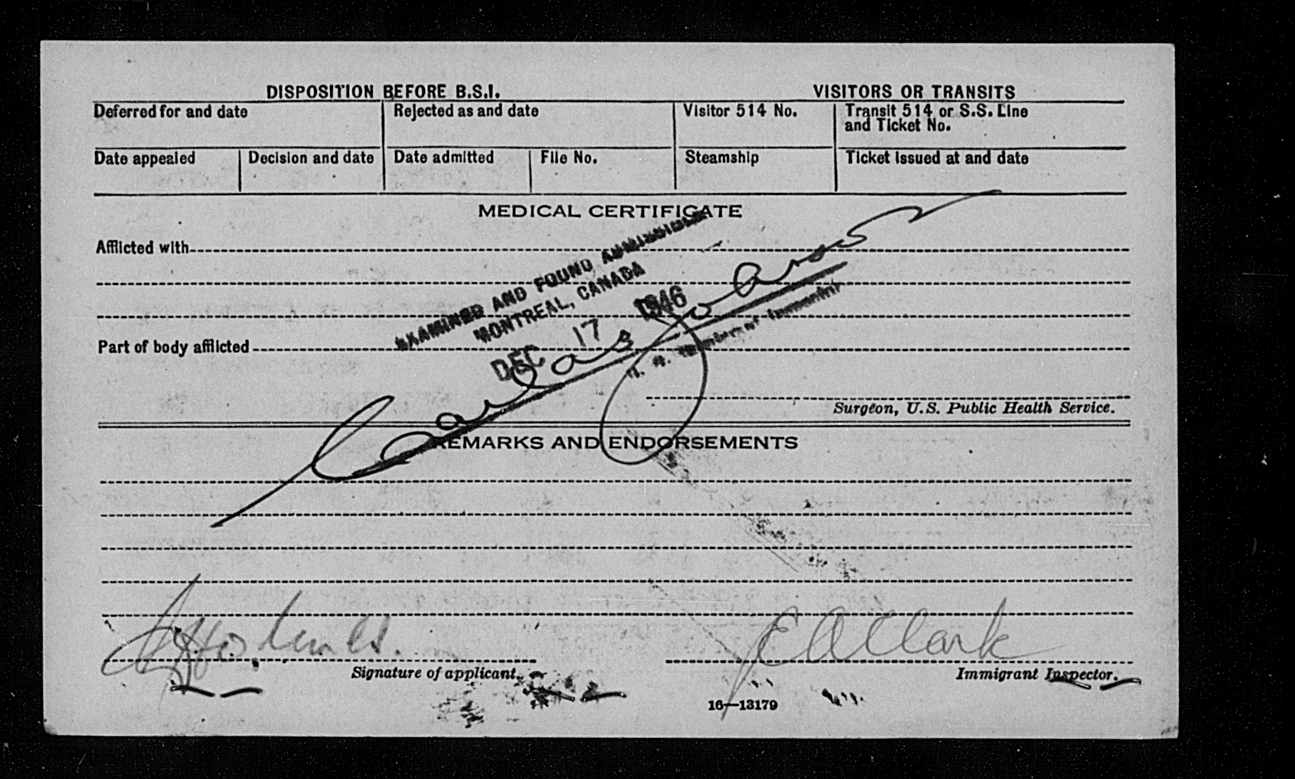 DISPOSITION BEFORE B.S.I.
VISITORS OR TRANSITS
Deferred for and date
Rejected as and date
Visitor 514 No.
Transit 514 or S.S. Line
and Ticket No.
Date appealed
Decision and date
Date admitted
File No.
Steamship
Ticket issued at and date
MEDICAL CERTIFICATE
Afflicted with
EXAMINED AND FOUND ADMISSIBLE
MONTREAL, CANADA
DEC 17 1946
Part of body afflicted
Surgeon, U.S. Public Health Service.
REMARKS AND ENDORSEMENTS
E A Clark
Signature of applicant.
Immigrant Inspector.
16—13179